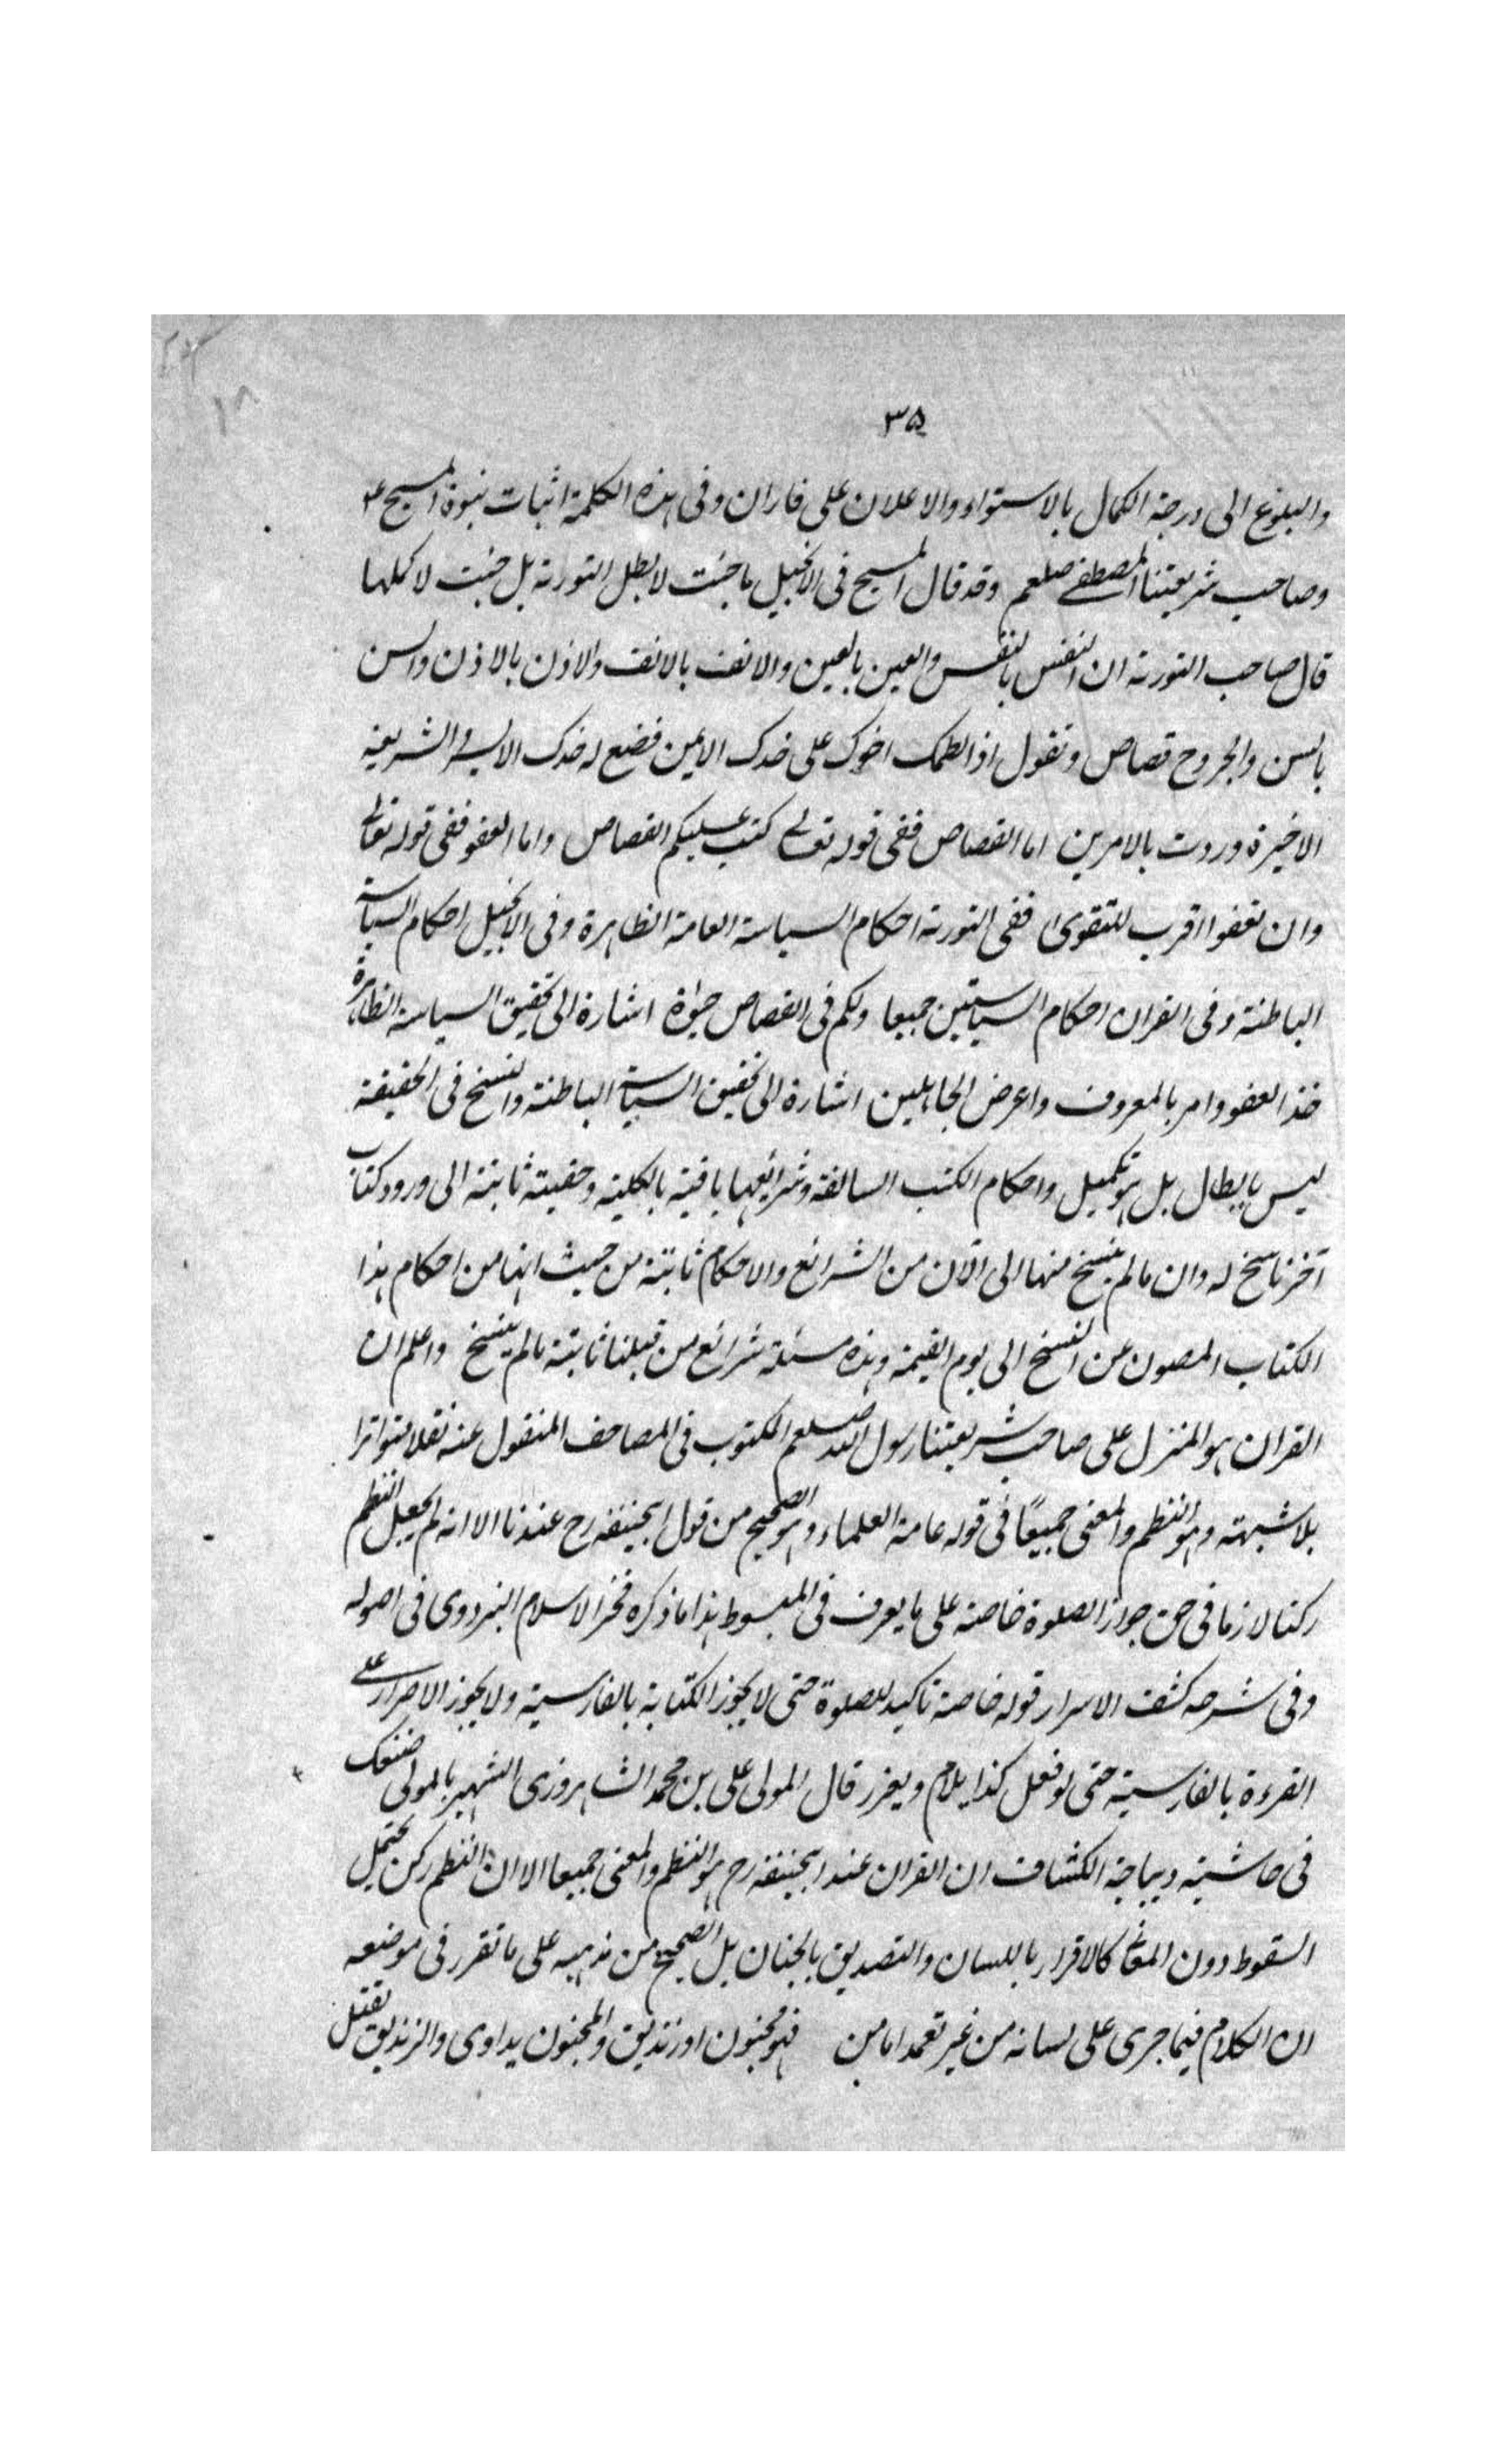 ٣٥
والبلوغ الى درجة الكمال بالاستواء والاعلان على فاران وفى هذه الكلمة اثبات نبوة المسيح ع
وصاحب شريعتنا المصطفے صلعم وقد قال المسيح فى الانجيل ما جئت لابطل التورىة بل جئت لاكملها
قال صاحب التورىة ان النفس بالنفس والعين بالعين والانف بالانف والاذن بالاذن والسن
بالسن والجروح قصاص وتقول اذا لطمك اخوك على خدك الايمن فضع له خدك الايسر والشريعة
الاخيرة وردت بالامرين اما القصاص ففى قوله تعالے كتب عليكم القصاص واما العفو ففى قوله تعالے
وان تعفوا اقرب للتقوى ففى التورىة احكام السياسة العامة الظاهرة وفى الانجيل احكام السياسة
الباطنة وفى القران احكام السياستين جميعا ولكم فى القصاص حيوة اشارة الى تحقيق السياسة الظاهرة
خذ العفو وامر بالمعروف واعرض الجاهلين اشارة الى تحقيق السياسة الباطنة والنسخ فى الحقيقة
ليس بابطال بل هو تكميل واحكام الكتب السالفة وشرائعها باقية بالكلية وحقيته ثابتة الى ورود كتاب
آخر ناسخ له وان ما لم ينسخ منها الى الآن من الشرائع والاحكام ثابتة من حيث انها من احكام هذا
الكتاب المصون عن النسخ الى يوم القيمة وهذه مسئلة شرائع من قبلنا ثابتة ما لم ينسخ واعلم ان
القران هو المنزل على صاحب شريعتنا رسول الله صلعم المكتوب فى المصاحف المنقول عنه نقلا متواترا
بلا شبهة وهو النظم والمعنى جميعًا فى قوله عامة العلماء وهو الصحيح من قول ابحنيفه رح عندنا الا انه لم يجعل النظم
ركنا لازما فى حق جواز الصلوة خاصة على ما يعرف فى المبسوط هذا ما ذكره فخر الاسلام البزدوى فى اصوله
وفى شرحه كشف الاسرار قوله خاصة تاكيد للصلوة حتى لا يجوز الكتابة بالفارسية ولا يجوز الاصرار علے
القرءة بالفارسية حتى لو فعل كذا يلام ويعزر قال المولى على بن محمد الشاهروزى الشهير بالمولى مصنفك
فى حاشية ديباجة الكشاف ان القران عند ابحنيفه رح هو النظم والمعنى جميعا الا ان النظم ركن يحتمل
السقوط دون المعنى كالاقرار باللسان والتصديق بالجنان بل الصحيح من مذهبه على ما تقرر فى موضعه
ان الكلام فيما جرى على لسانه من غير تعمد اما من فهو مجنون او زنديق والمجنون يداوى والزنديق يقتل